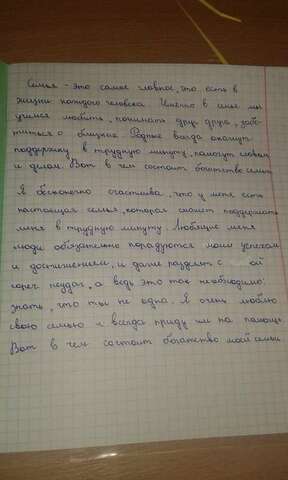 Семья - это самое главное, что есть в
жизни каждого человека. Именно в семье мы
учимся любить, понимать друг друга, забо-
титься о близких. Родные всегда окажут
поддержку в трудную минуту, помогут словом
и делом. Вот в чем состоит богатство семьи.
Я бесконечно счастлива, что у меня есть
настоящая семья, которая сможет поддержать
меня в трудную минуту. Любящие меня
люди обязательно порадуются моим успехам
и достижениям, и даже разделят с ой
горечь неудач, а ведь это так необходимо:
знать, что ты не одна. Я очень люблю
свою семью и всегда приду им на помощь.
Вот в чем состоит богатство моей семьи.